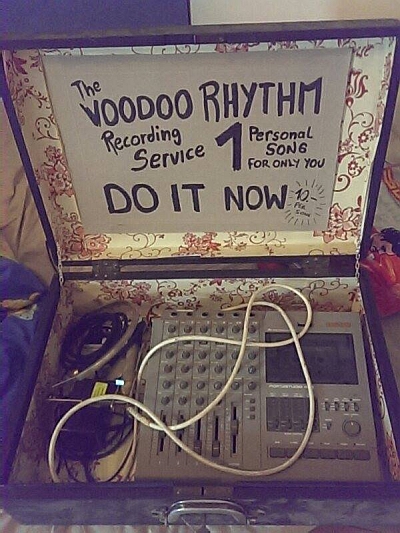 The
VOODOO RHYTHM
Recording
Service
1 Personal
SONG
FOR ONLY YOU
DO IT NOW
10.-
Per
Song
PORTASTUDIO